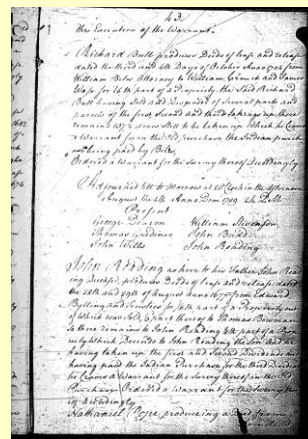 43.
The Execution of the Warrant.
Richard Bull produces Deeds of Lease and release
dated the third and 4th Days of October Anno 1722 from
William Biles Attorney to William Crouch and James
Wass for 1/4 th part of a Propriety, the said Richard
Bull having Sold and Disposed of Several parts and
parcels of the first, Second and third takeings up there
remains 137 2 acres Still to be taken up Which he Craves
a Warrant for on the Old purchase the Indian purch
not being paid by Biles,
Ordered a Warrant for the Survey thereof Accordingly
Adjourned till to Morrow at 2 o Clock in the afternoon
August the 4th Anno Dom 1729 2h P M
Present
George Deacon William Stevenson
Thomas Gardiner John Budd
John Wills John Reading
John Reading as heir to his Father John Rea
ding Deceased, produces Deeds of Lease and release dated
the 28th and 29th of August anno 1677 from Edward
Bylling and Trustees for part of a Propriety one
of which was Sold, thereof to Thomas Bowman
So there remains to John Reading part of a Prop
riety Which Descends to John Reading the Son and he
having taken up the first and Second Dividends and
having paid the Indian Purchase for the third Dividend
he Craves a Warrant for the Survey thereof in the Old
Purchase Ordered a Warrant for the Survey there
of Accordingly
Nathaniel Pope, producing a Deed from